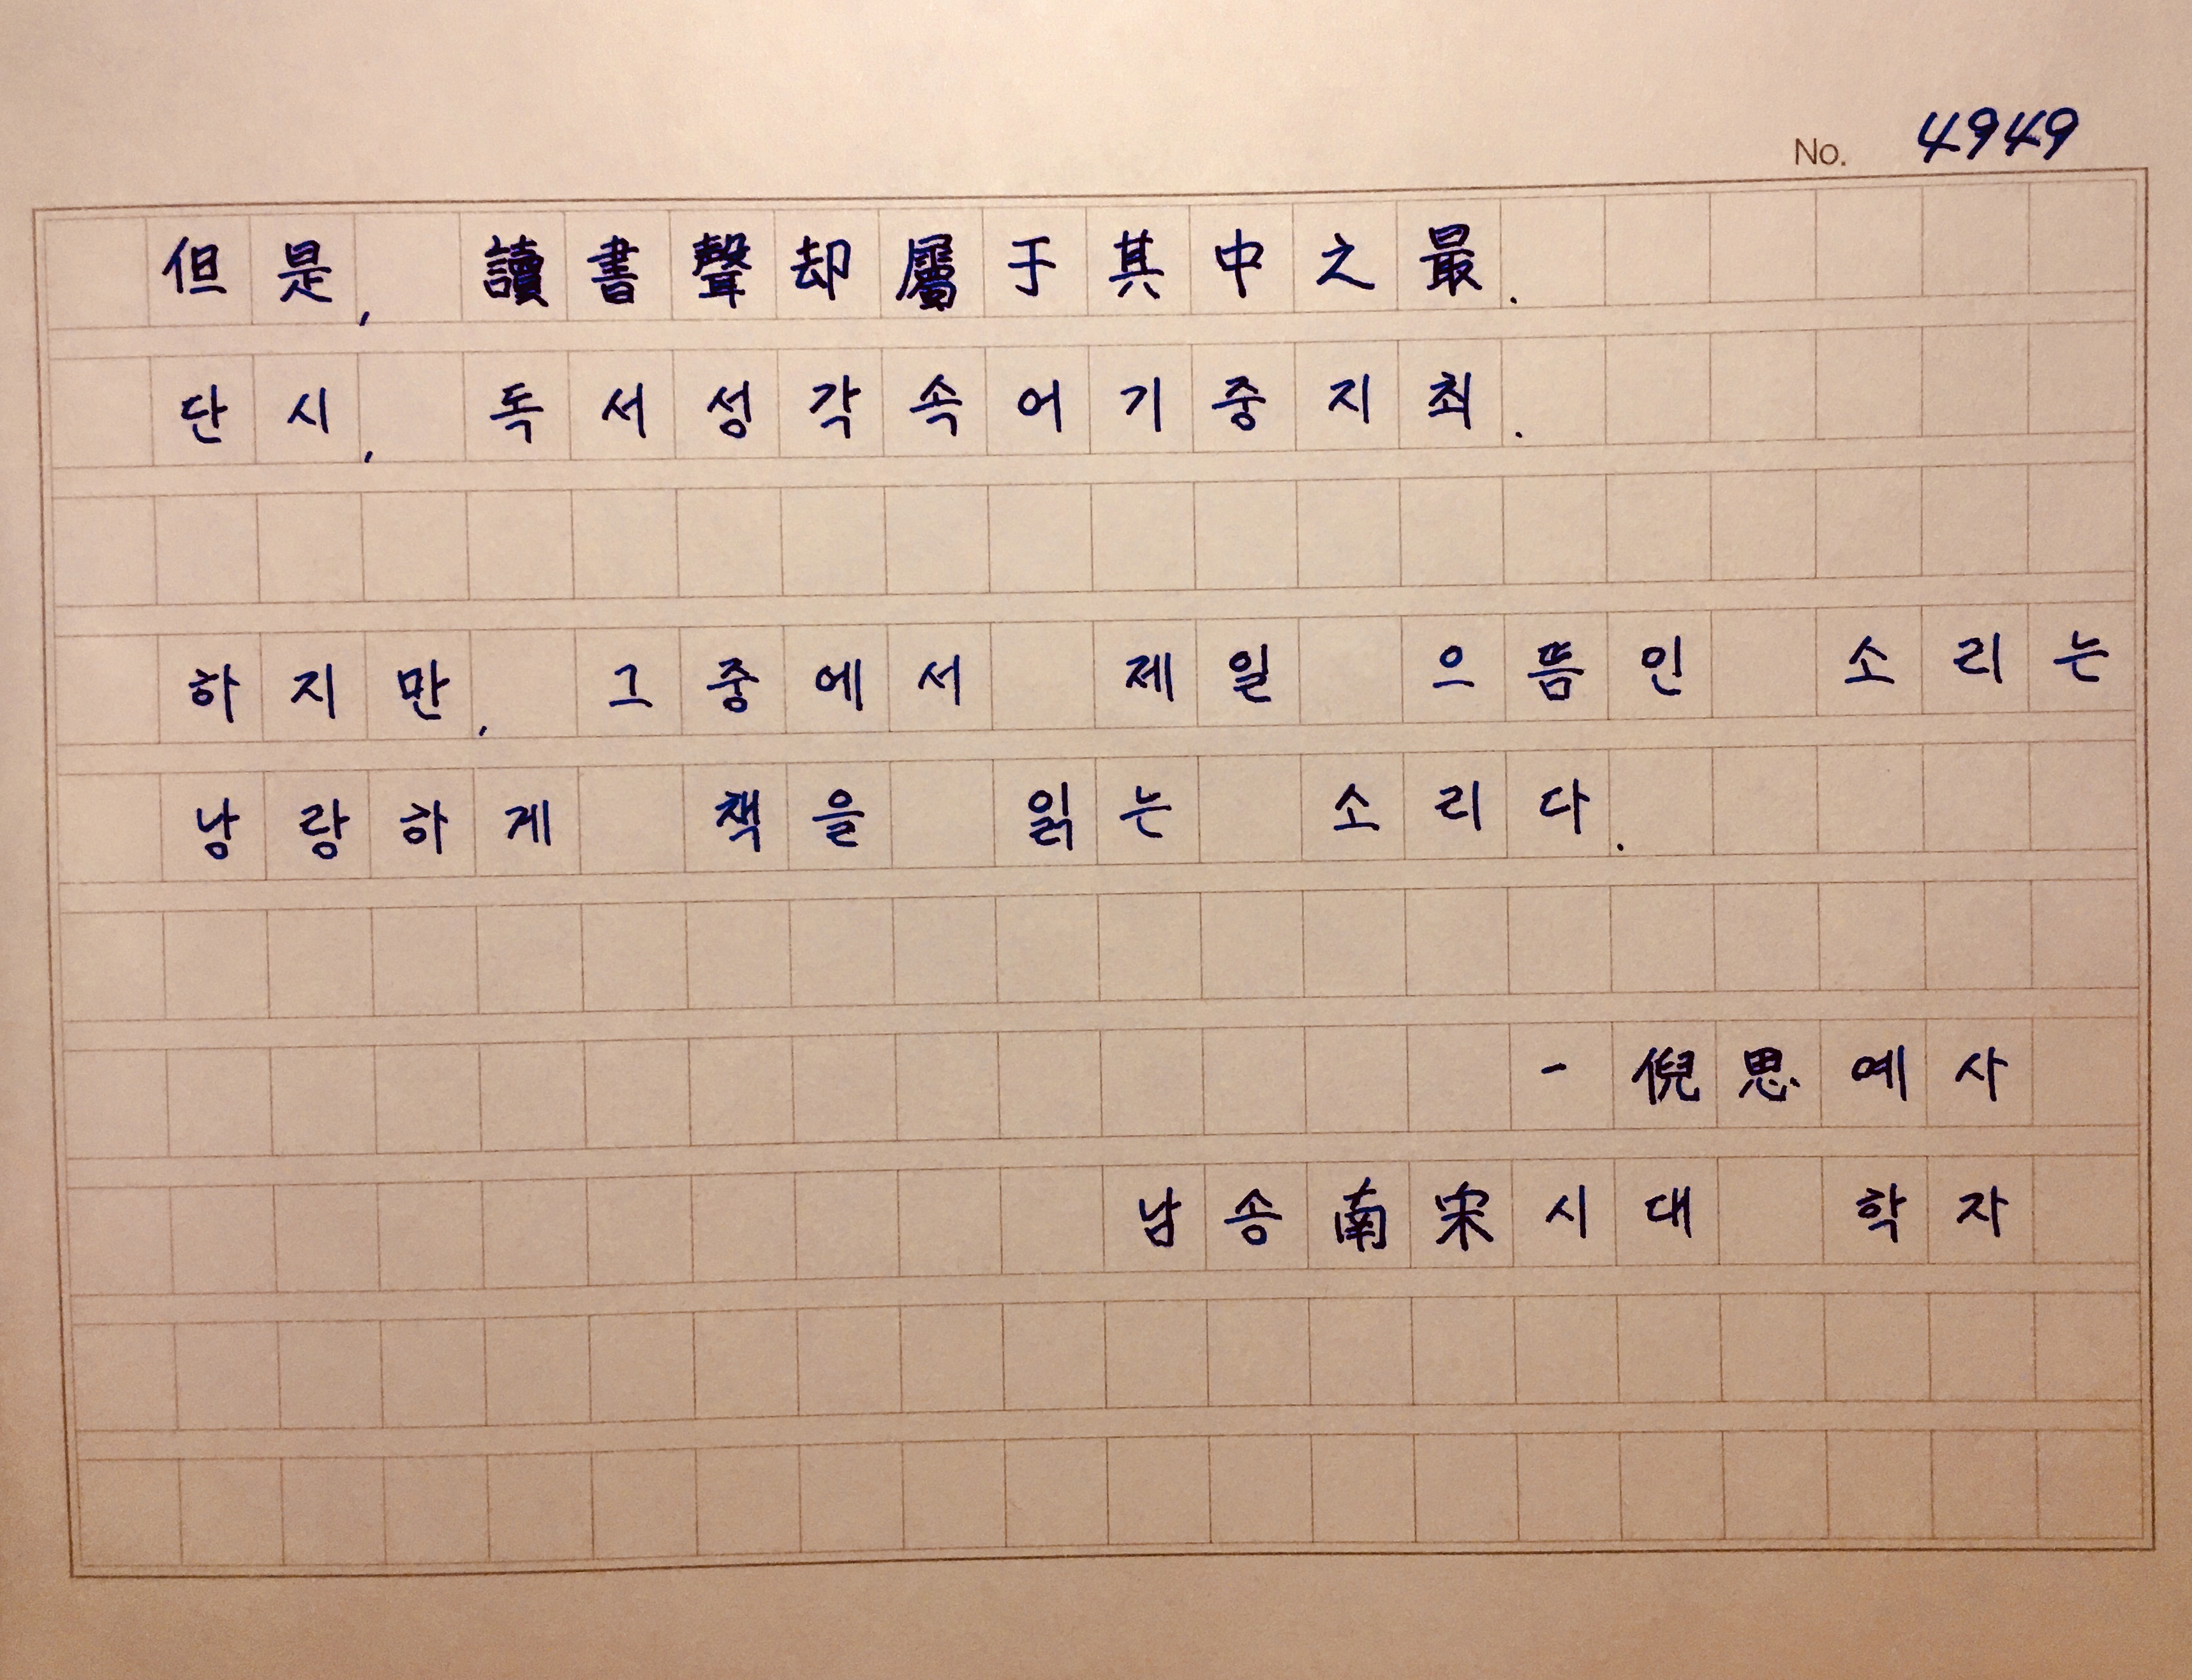 No. 4949
但是, 讀書聲却屬于其中之最.
단시, 독서성각속어기중지최.
하지만, 그중에서 제일 으뜸인 소리는
낭랑하게 책을 읽는 소리다.
- 倪思예사
남송南宋시대 학자